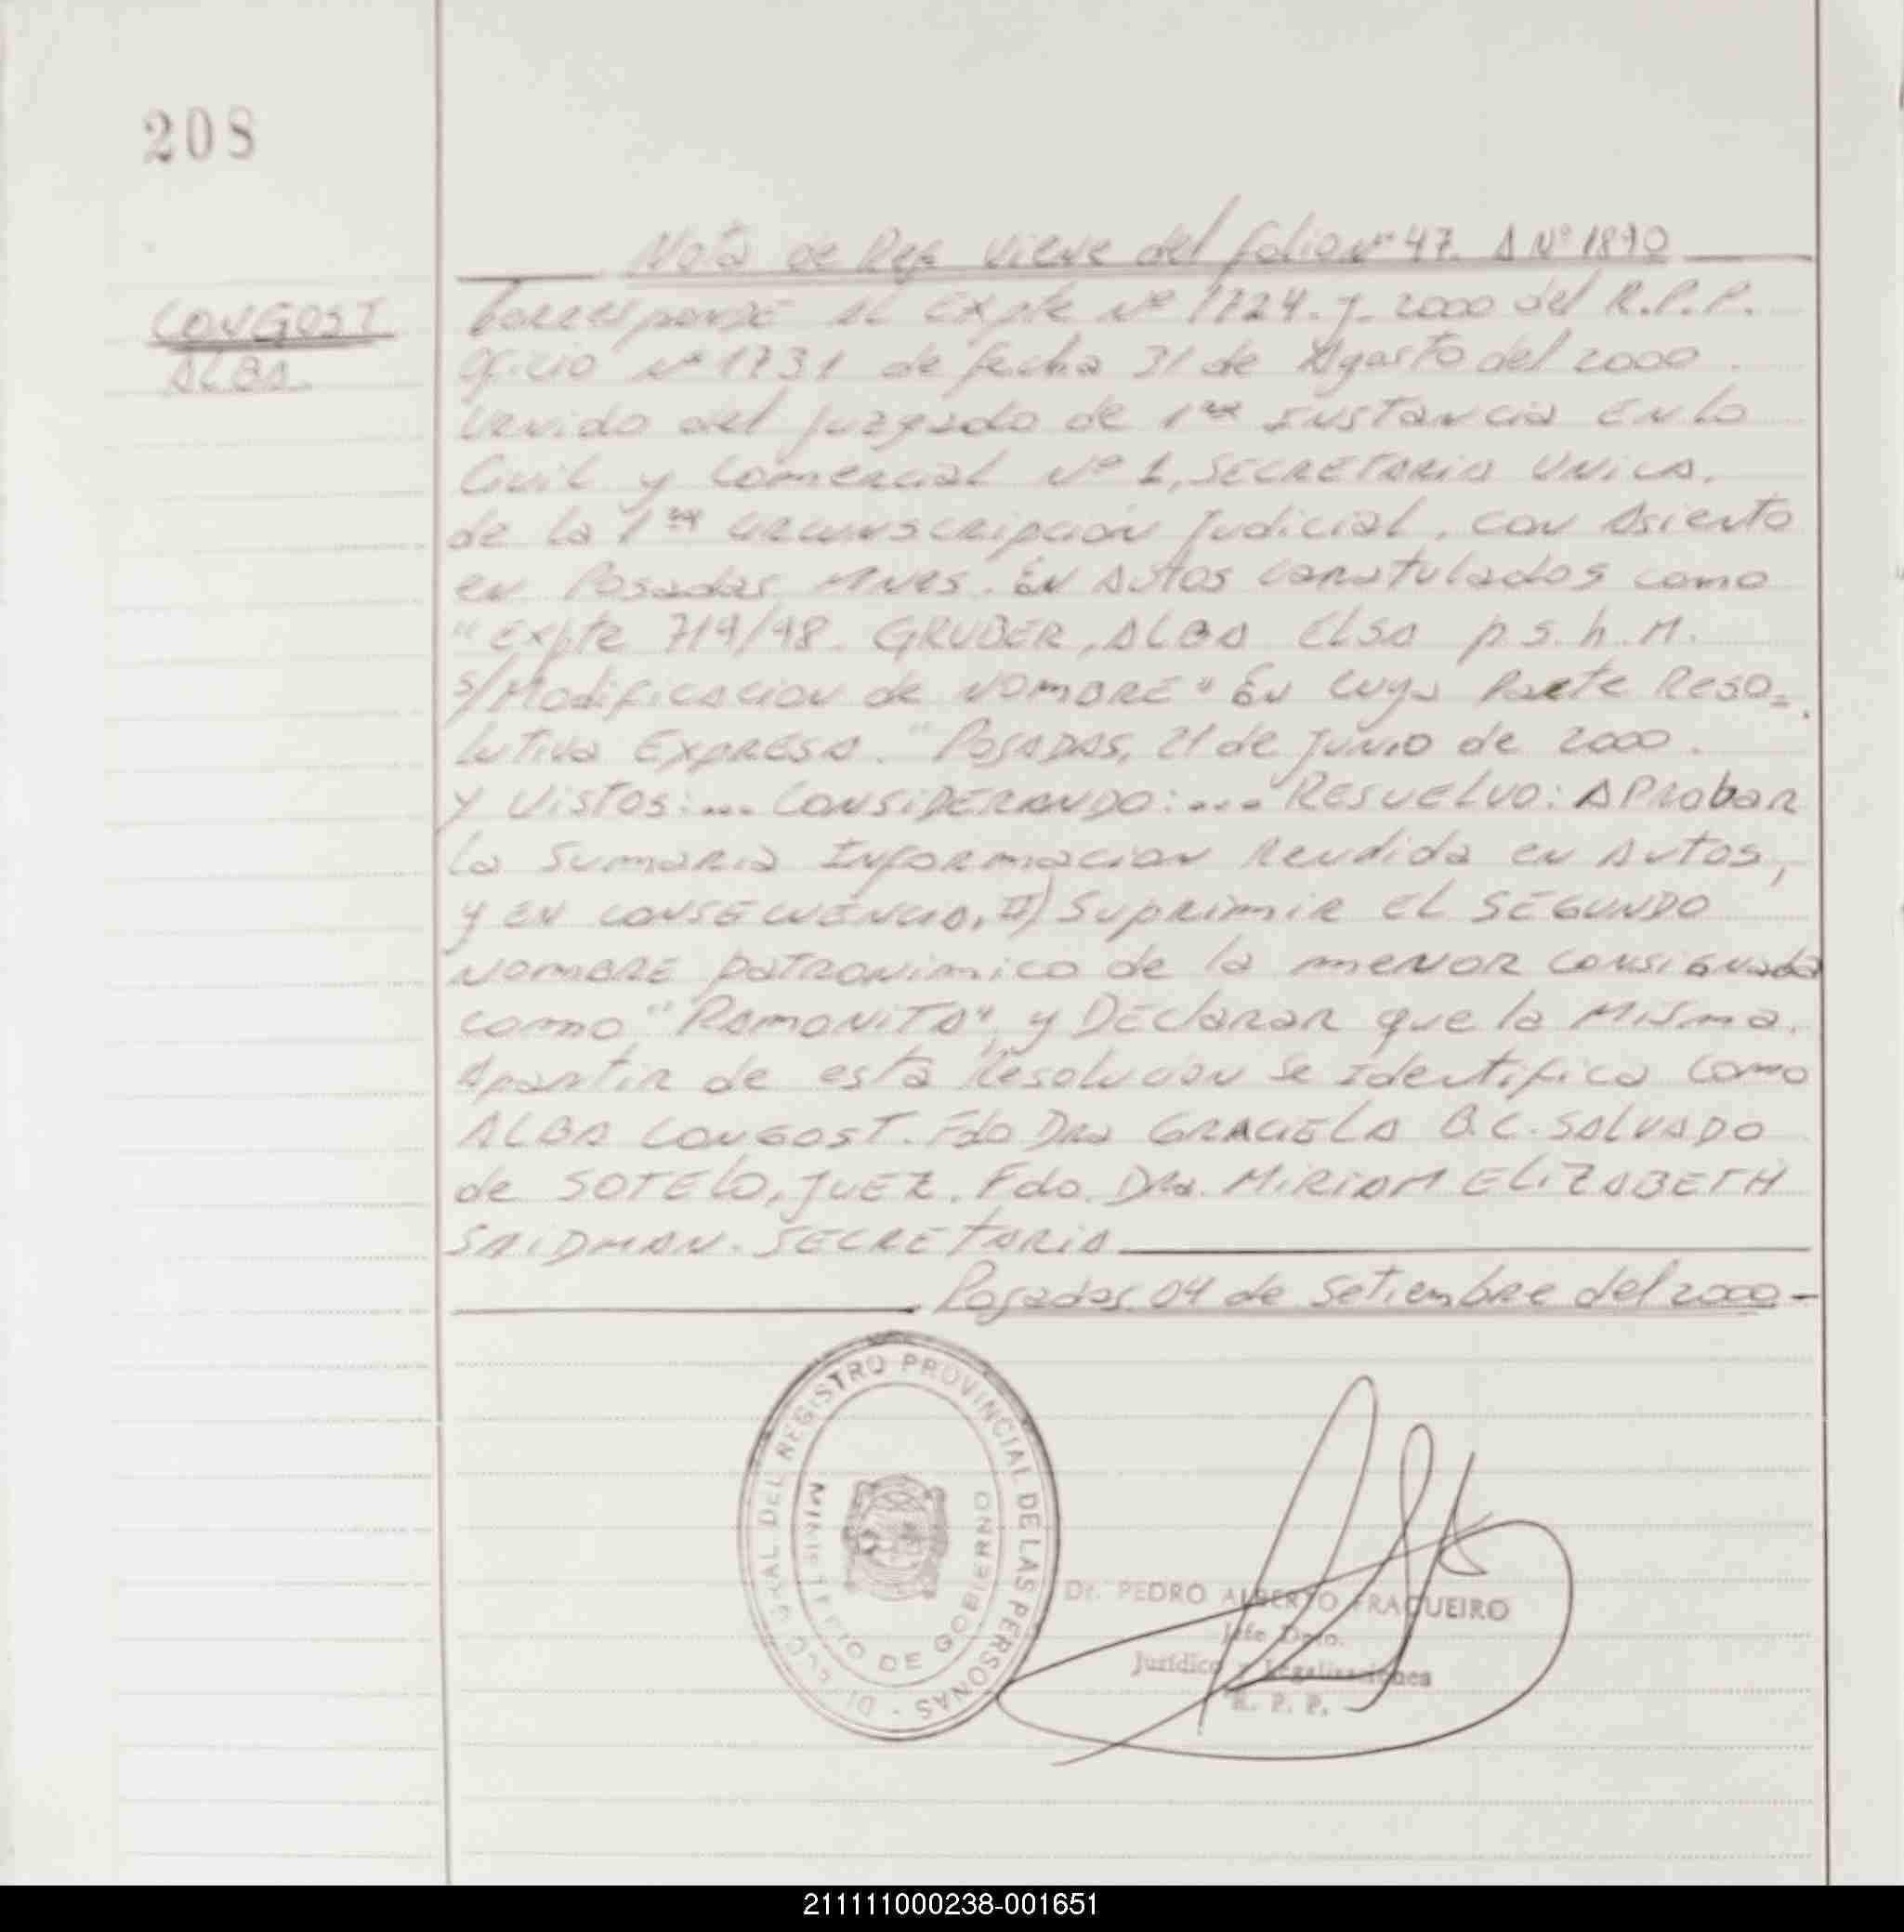 208
Nota de Ref. viene del folio Nº 47. A Nº 1890
CONGOST
ALBA
Corresponde al Expte Nº 1724. J. 2000 del R.P.P.
Oficio Nº 1731 de fecha 31 de Agosto del 2000.
Venido del Juzgado de 1ra Instancia EN lo
Civil y Comercial Nº 1, SECRETARIA UNICA.
de la 1ra circunscripción Judicial, con Asiento
en Posadas MNES. EN Autos caratulados como
"Expte 719/98. GRUBER, ALBA ELSA p.s.h.M.
s/Modificacion de NOMBRE" En cuya Parte Reso=
lutiva EXPRESA. "POSADAS, 21 de JUNIO de 2000.
y VISTOS:... CONSIDERANDO:... RESUELVO: APRobar
la Sumaria INFORmacion Rendida en Autos,
y EN CONSECUENCIA, II) SUPRIMIR EL SEGUNDO
NOMBRE patRONimico de la mENOR CONSIGNada
como "RAMONITA", y DEClaraR que la MISma.
Apartir de esta Resolucion se Identifica como
ALBA CONGOST. Fdo Dra GRACIELA B.C. SALVADO
de SOTELO, JUEZ. Fdo. Dra. MIRIAM ELIZABETH
SAIDMAN. SECRETARIA
Posadas, 04 de Setiembre del 2000-
REGISTRO PROVINCIAL DE LAS PERSONAS
DE GOBIERNO
Dr. PEDRO ALBERTO FRAQUEIRO
Jefe Dpto.
Jurídico y Legalizaciones
R. P. P.
211111000238-001651